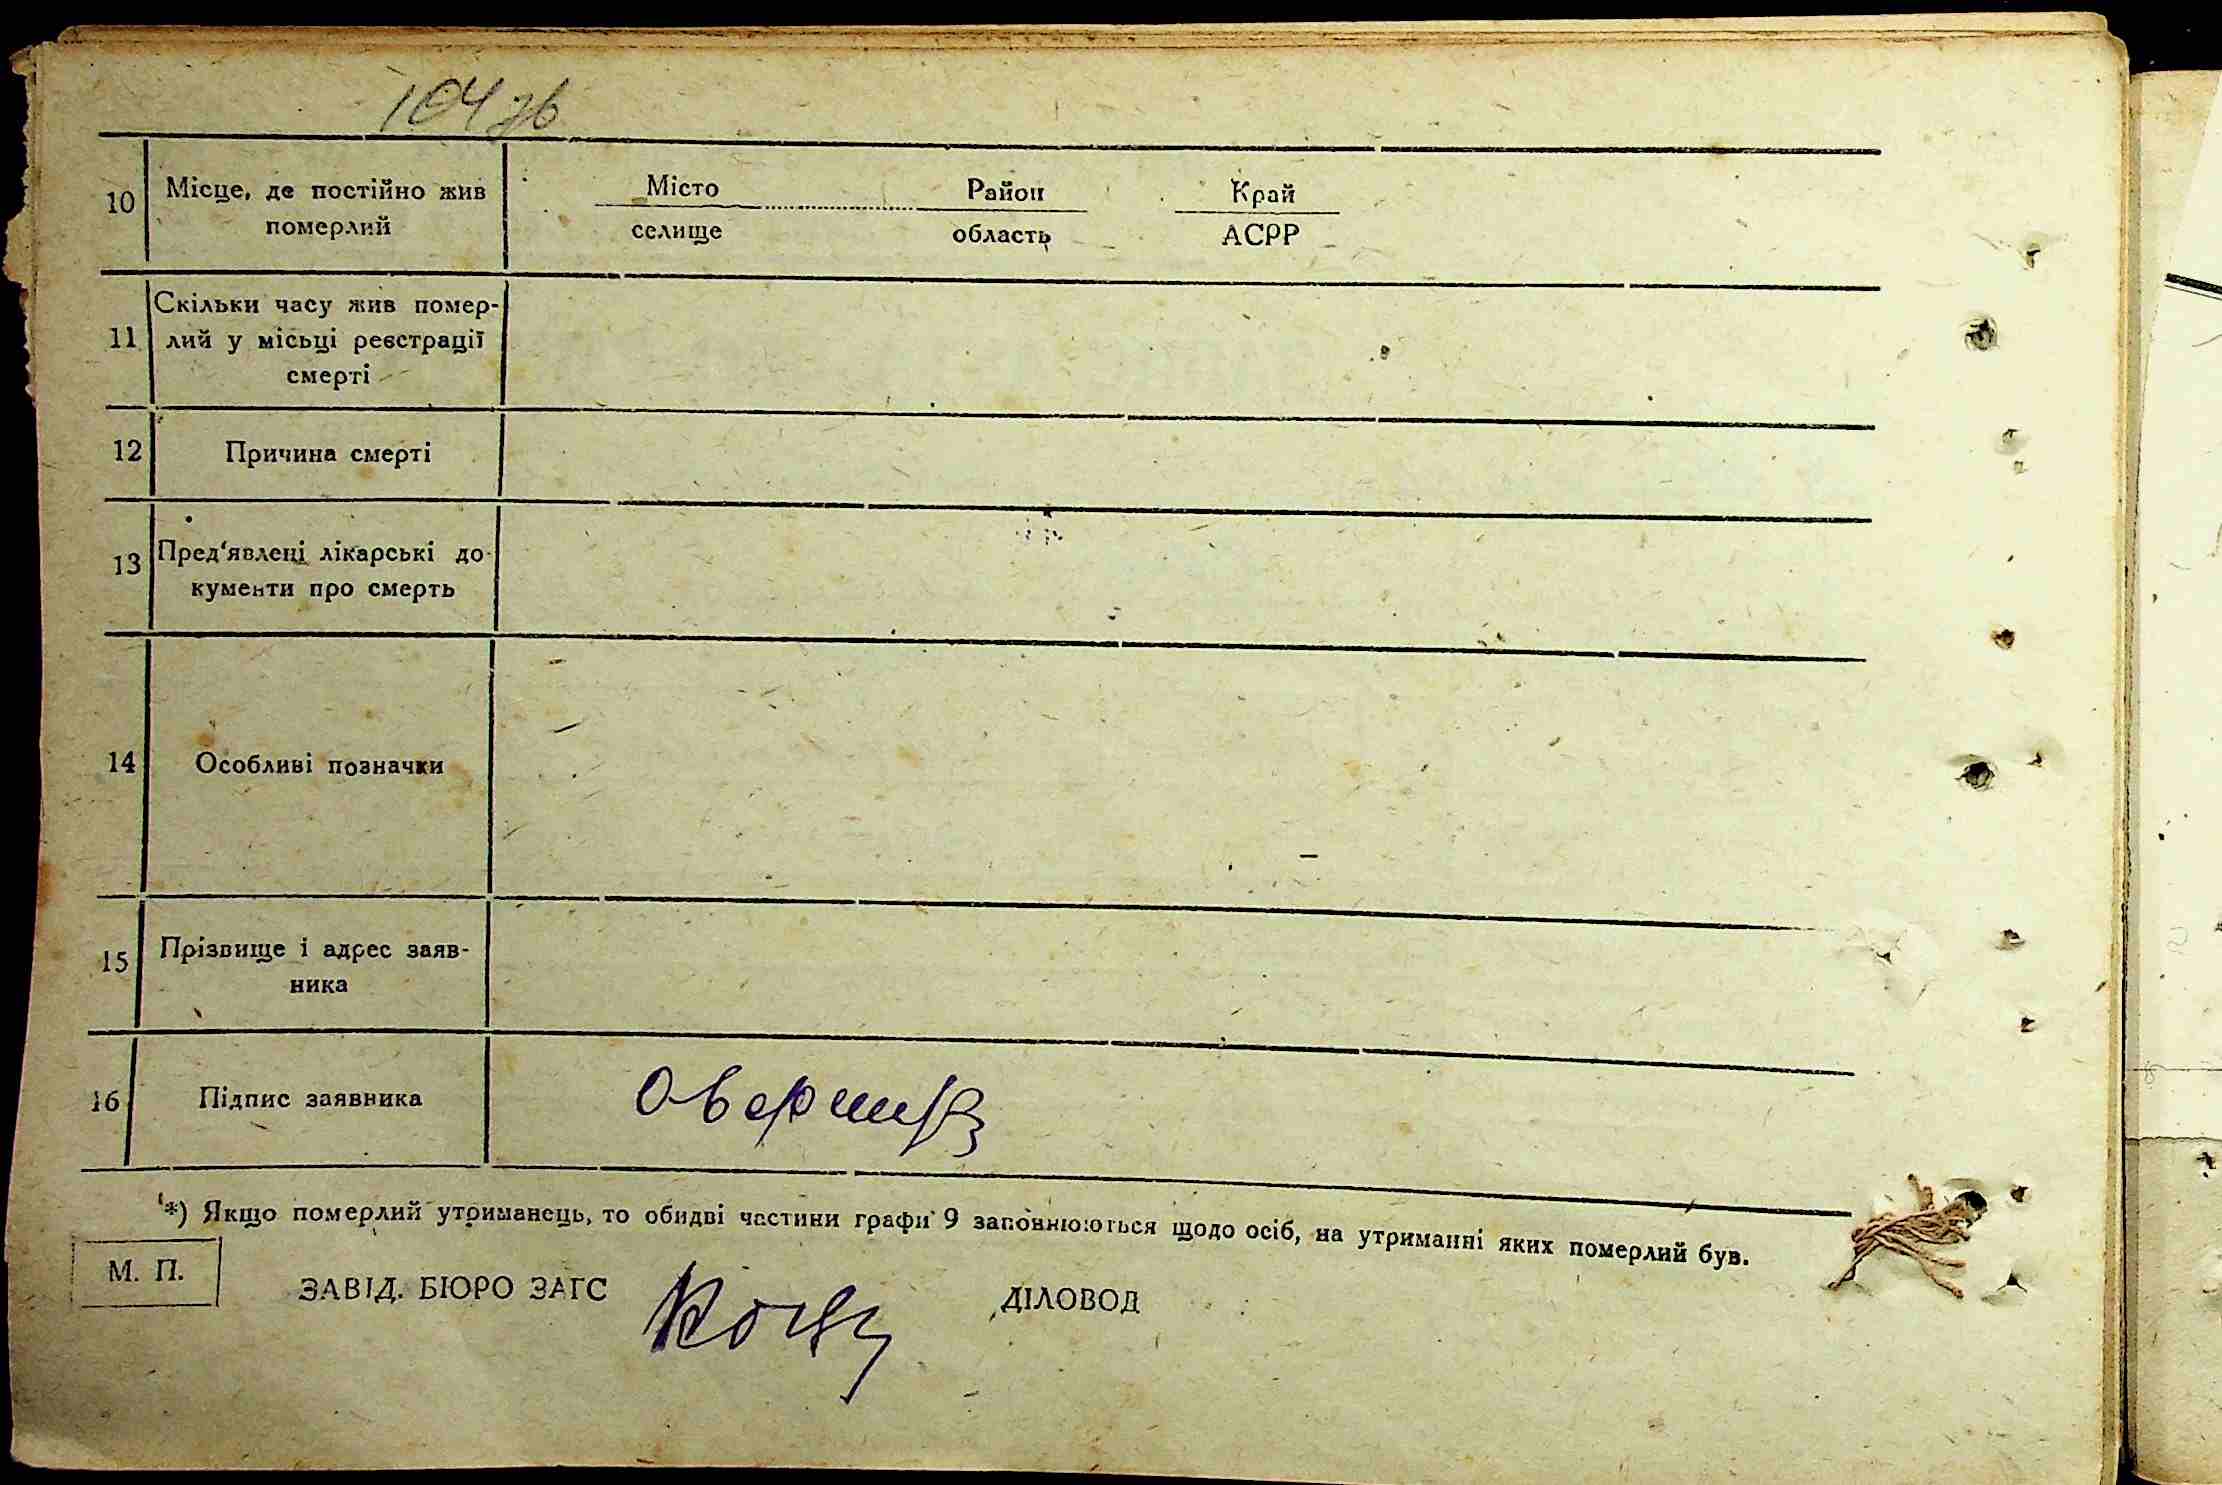 104 зв
10 Місце, де постійно жив
померлий
Місто Район Край
селище область АСРР
11 Скільки часу жив помер-
лий у місьці реєстрації
смерті
12 Причина смерті
13 Пред'явлені лікарські до-
кументи про смерть
14 Особливі позначки
15 Прізвище і адрес заяв-
ника
16 Підпис заявника
*) Якщо померлий утриманець, то обидві частини графи 9 заповнюються щодо осіб, на утриманні яких померлий був.
М. П.
ЗАВІД. БЮРО ЗАГС ДІЛОВОД